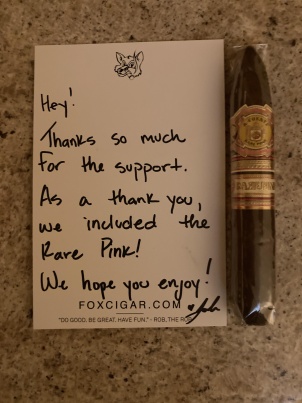 Hey!
Thanks so much
for the support.
As a thank you,
we included the
Rare Pink!
We hope you enjoy!
FOXCIGAR.COM
"DO GOOD, BE GREAT, HAVE FUN." - ROB, THE